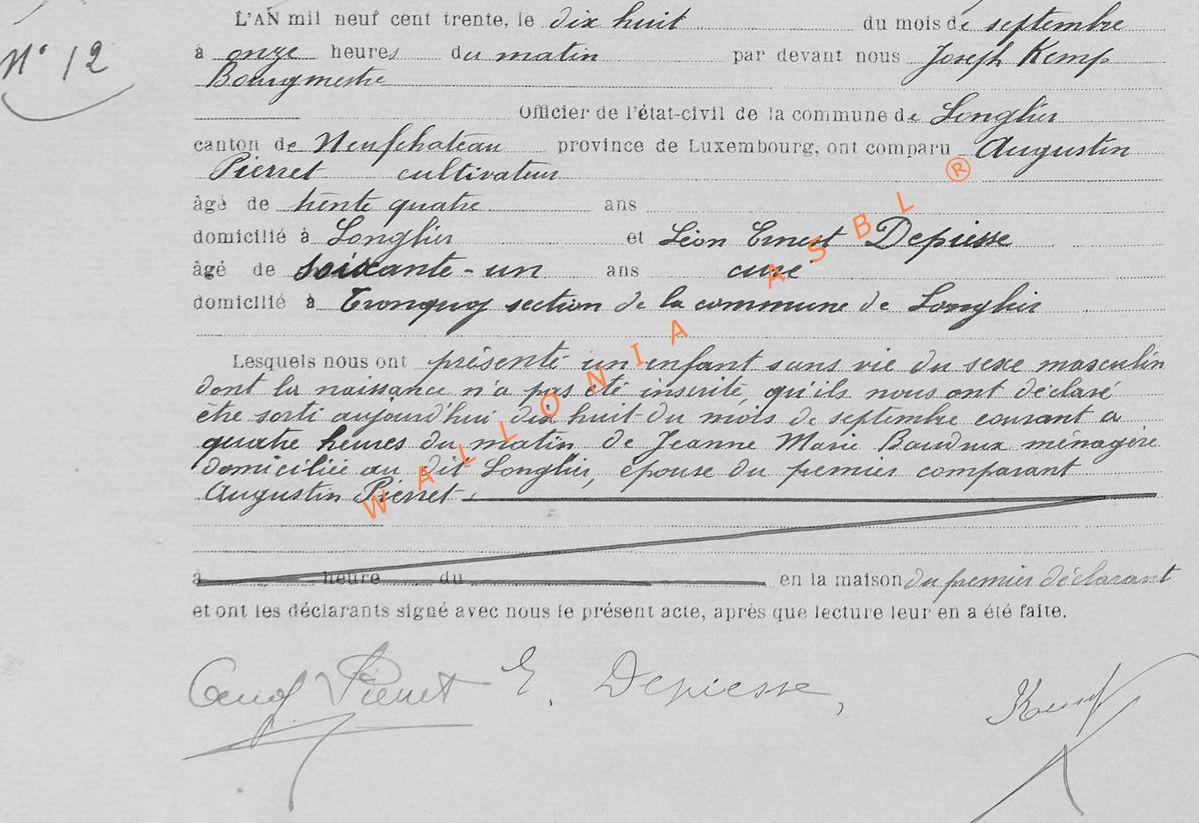 L'AN mil neuf cent trente, le dix huit du mois de septembre
N° 12
à onze heures du matin par devant nous Joseph Kemp
Bourgmestre
Officier de l'état-civil de la commune de Longlier
canton de Neufchateau province de Luxembourg, ont comparu Augustin
Pierret cultivateur
âgé de trente quatre ans
domicilié à Longlier et Léon Ernest Depiesse
âgé de soixante-un ans curé
domicilié à Tronquoy section de la commune de Longlier
Lesquels nous ont présenté un enfant sans vie du sexe masculin
dont la naissance n'a pas été inscrite, qu'ils nous ont déclaré
être sorti aujourd'hui dix huit du mois de septembre courant a
quatre heures du matin de Jeanne Marie Baudrux ménagère
domiciliée au dit Longlier, épouse du premier comparant
Augustin Pierret.
à heure du en la maison du premier déclarant
et ont les déclarants signé avec nous le présent acte, après que lecture leur en a été faite.
Aug Pierret E. Depiesse, Kemp
WALLONIA ASBL ®